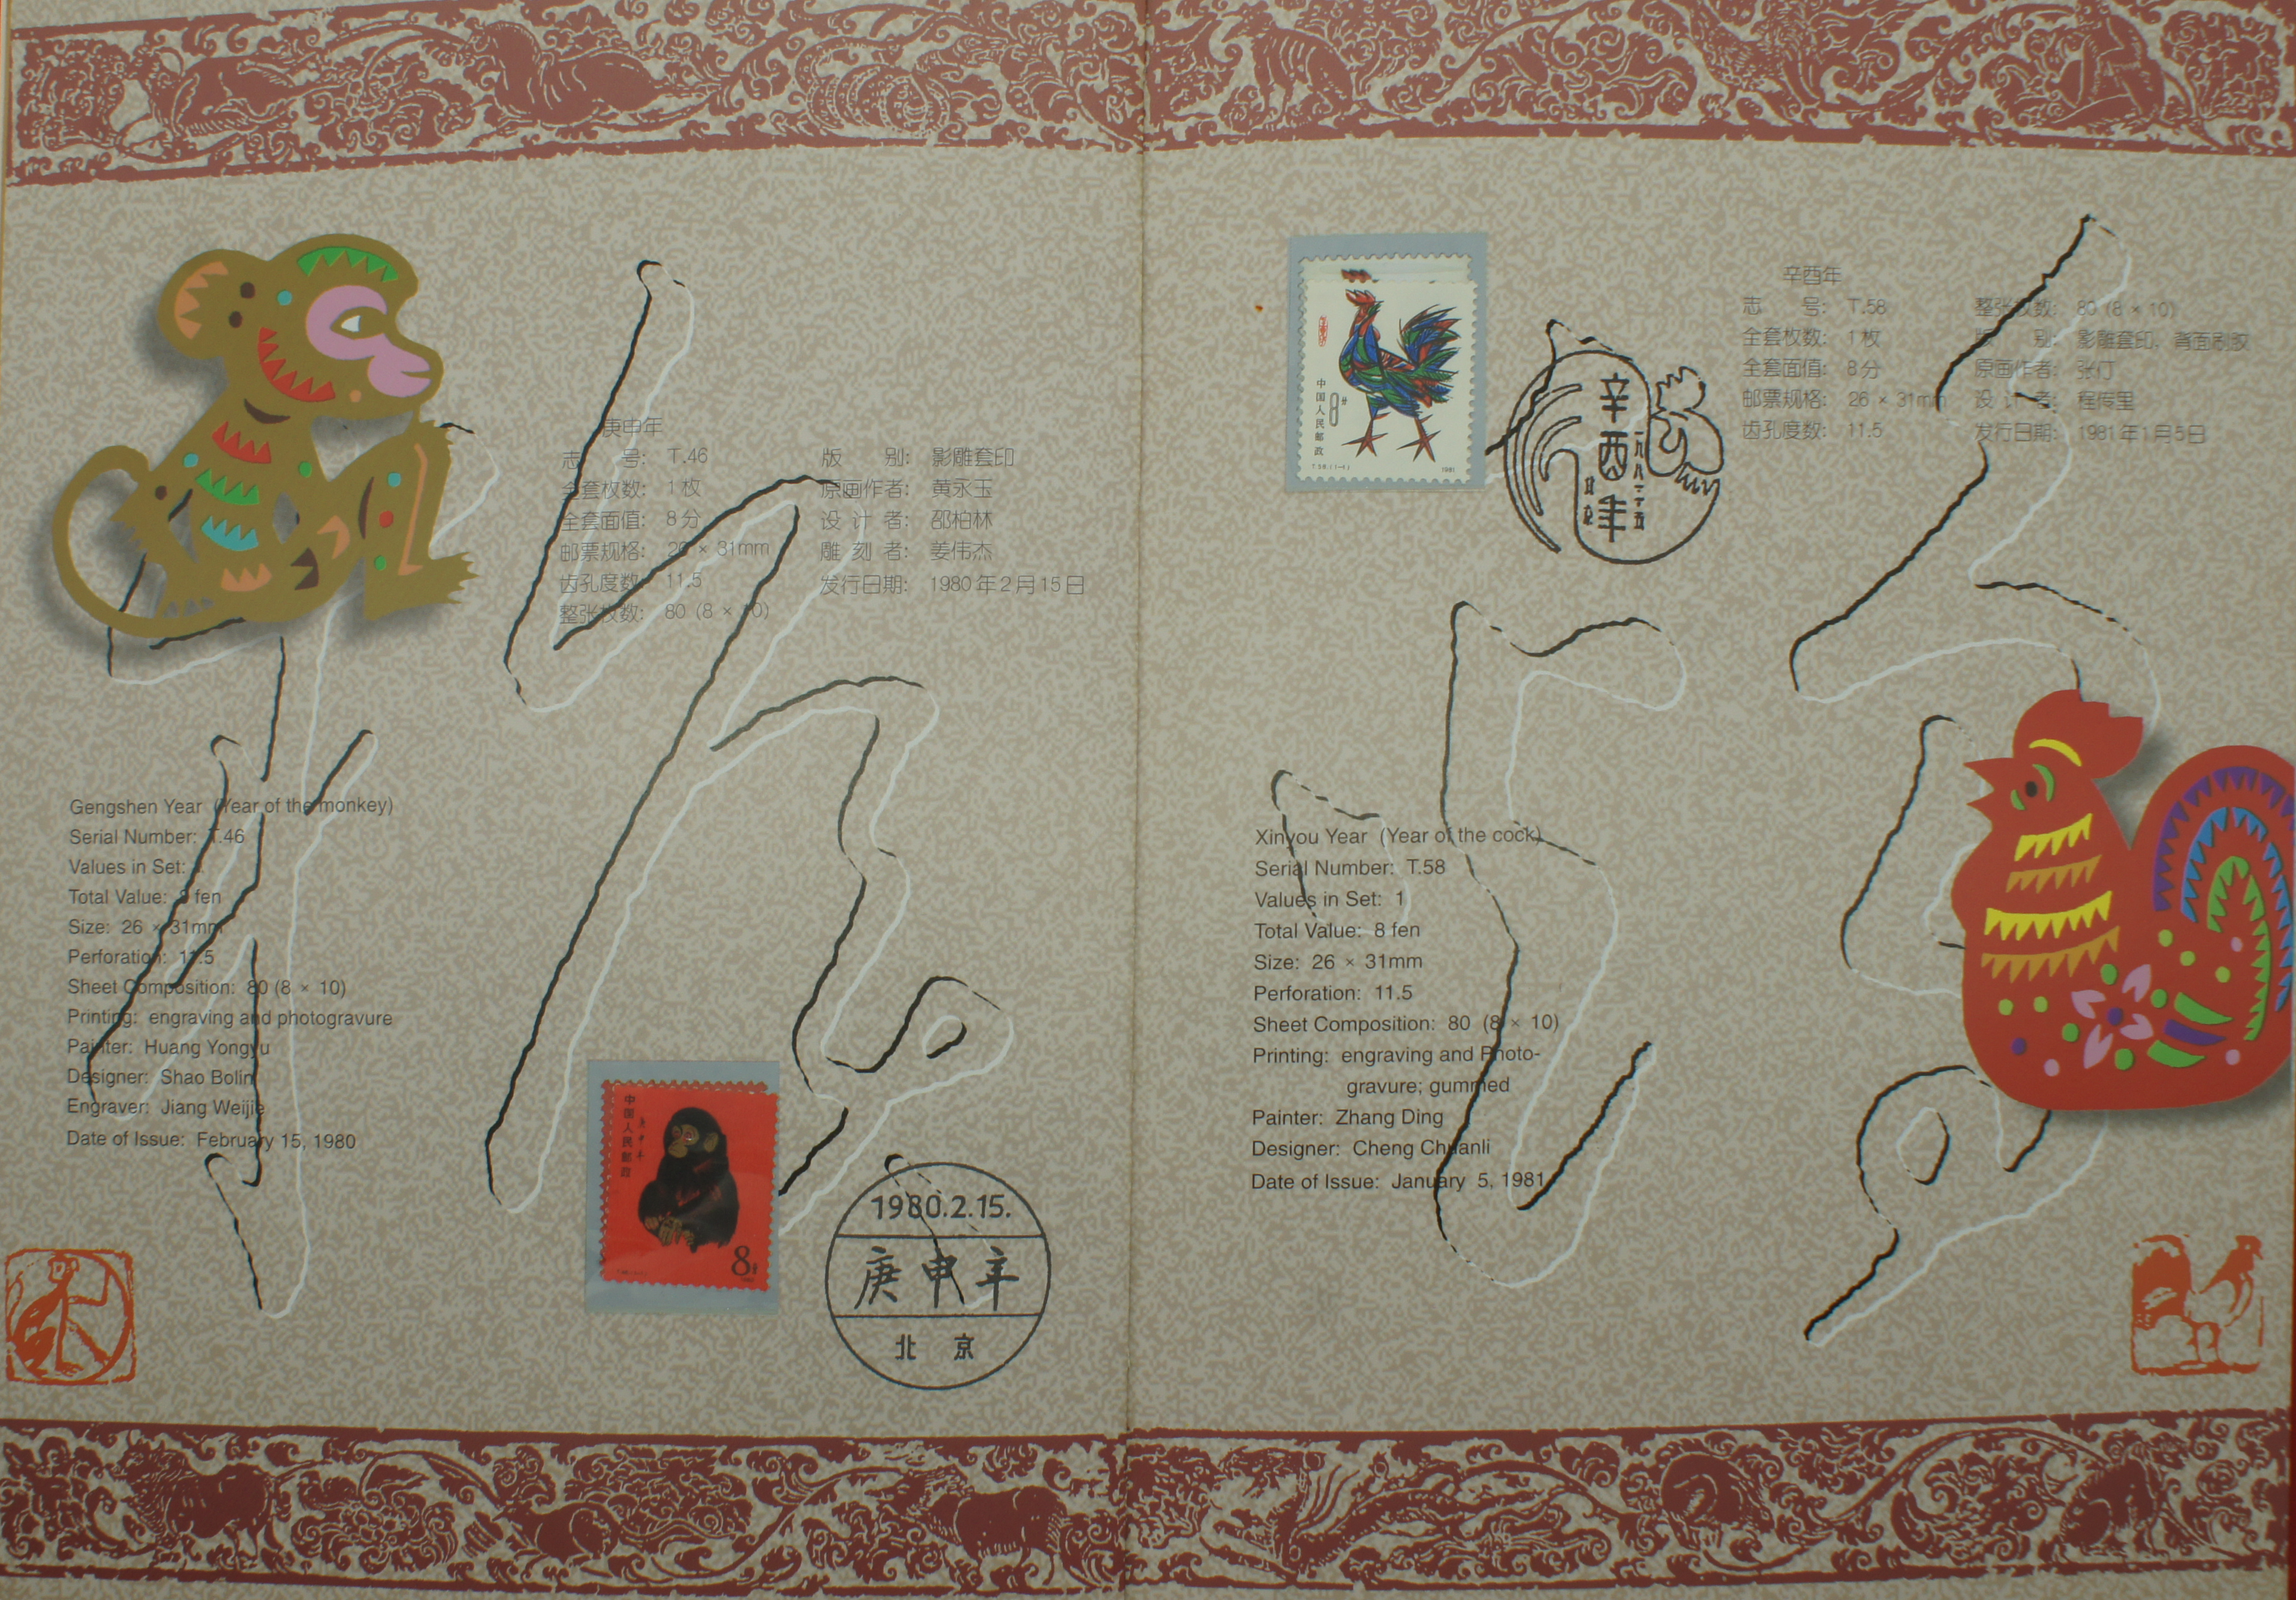 庚申年
志 号: T.46
全套枚数: 1枚
全套面值: 8分
邮票规格: 26 × 31mm
齿孔度数: 11.5
整张枚数: 80 (8 × 10)
版 别: 影雕套印
原画作者: 黄永玉
设 计 者: 邵柏林
雕 刻 者: 姜伟杰
发行日期: 1980年2月15日
Gengshen Year (Year of the monkey)
Serial Number: T.46
Values in Set:
Total Value: 8 fen
Size: 26 × 31mm
Perforation: 11.5
Sheet Composition: 80 (8 × 10)
Printing: engraving and photogravure
Painter: Huang Yongyu
Designer: Shao Bolin
Engraver: Jiang Weijie
Date of Issue: February 15, 1980
中国人民邮政
庚申年
8分
1980.2.15.
庚申年
北京
中国人民邮政
8分
T.58.(1-1)
1981
辛酉年
一九八一·一·五
北京
辛酉年
志 号: T.58
全套枚数: 1枚
全套面值: 8分
邮票规格: 26 × 31mm
齿孔度数: 11.5
整张枚数: 80 (8 × 10)
版 别: 影雕套印、背面刷胶
原画作者: 张仃
设 计 者: 程传理
发行日期: 1981年1月5日
Xinyou Year (Year of the cock)
Serial Number: T.58
Values in Set: 1
Total Value: 8 fen
Size: 26 × 31mm
Perforation: 11.5
Sheet Composition: 80 (8 × 10)
Printing: engraving and Photo-
gravure; gummed
Painter: Zhang Ding
Designer: Cheng Chuanli
Date of Issue: January 5, 1981